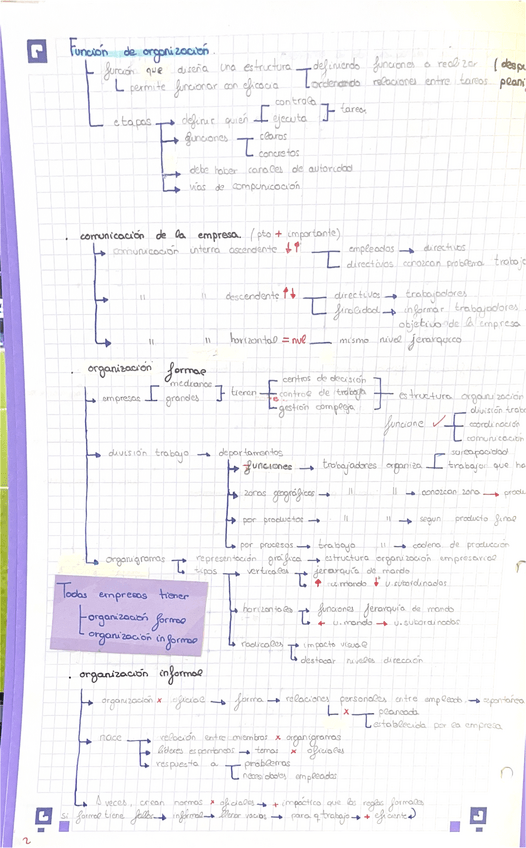 Función de organización.
función que diseña una estructura definiendo funciones a realizar (despu
permite funcionar con eficacia ordenando relaciones entre tareas plani
etapas → definir quién controla tarea
ejecuta
→ funciones claros
concretos
→ debe haber canales de autoridad
→ vías de comunicación
. comunicación de la empresa. (pto + importante)
→ comunicación interna ascendente ↓↑ empleados → directivos
directivos conozcan problema trabajo
→ " " descendente ↑↓ directivos → trabajadores
finalidad → informar trabajadores
objetivo de la empresa
→ " " horizontal = nvl mismo nivel jerarquico
. organización formal
→ empresas medianas tienen centros de decisión
grandes control de trabajo estructura organización
gestión compleja
funcione ✓ división trab
coordinación
comunicación
→ división trabajo → departamentos
→ funciones → trabajadores organiza trabajar que ha
→ zonas geográficas → " " → conozcan zona → produ
→ por productos → " " → segun producto final
→ por procesos → trabajo " → cadena de producción
→ organigramas → representación gráfica → estructura organización empresarial
→ tipos → verticales → jerarquía de mando
↑ u.mando ↓ u.subordinados
→ horizontales → funciones jerarquía de mando
← u.mando → u.subordinados
→ radicales → impacto visual
→ destacar niveles dirección
Todas empresas tienen
organización formal
organización informal
. organización informal
→ organización × oficial → forma → relaciones personales entre empleado → espontánea
× planeada
establecida por la empresa
→ nace → relación entre miembros × organigramas
→ líderes espontáneos → temas × oficiales
→ respuesta a problemas
necesidades empleados
→ A veces, crean normas × oficiales → + impacto que las reglas formales
si formal tiene fallos → informal → llenar vacíos → para q trabajo → + eficiente
2